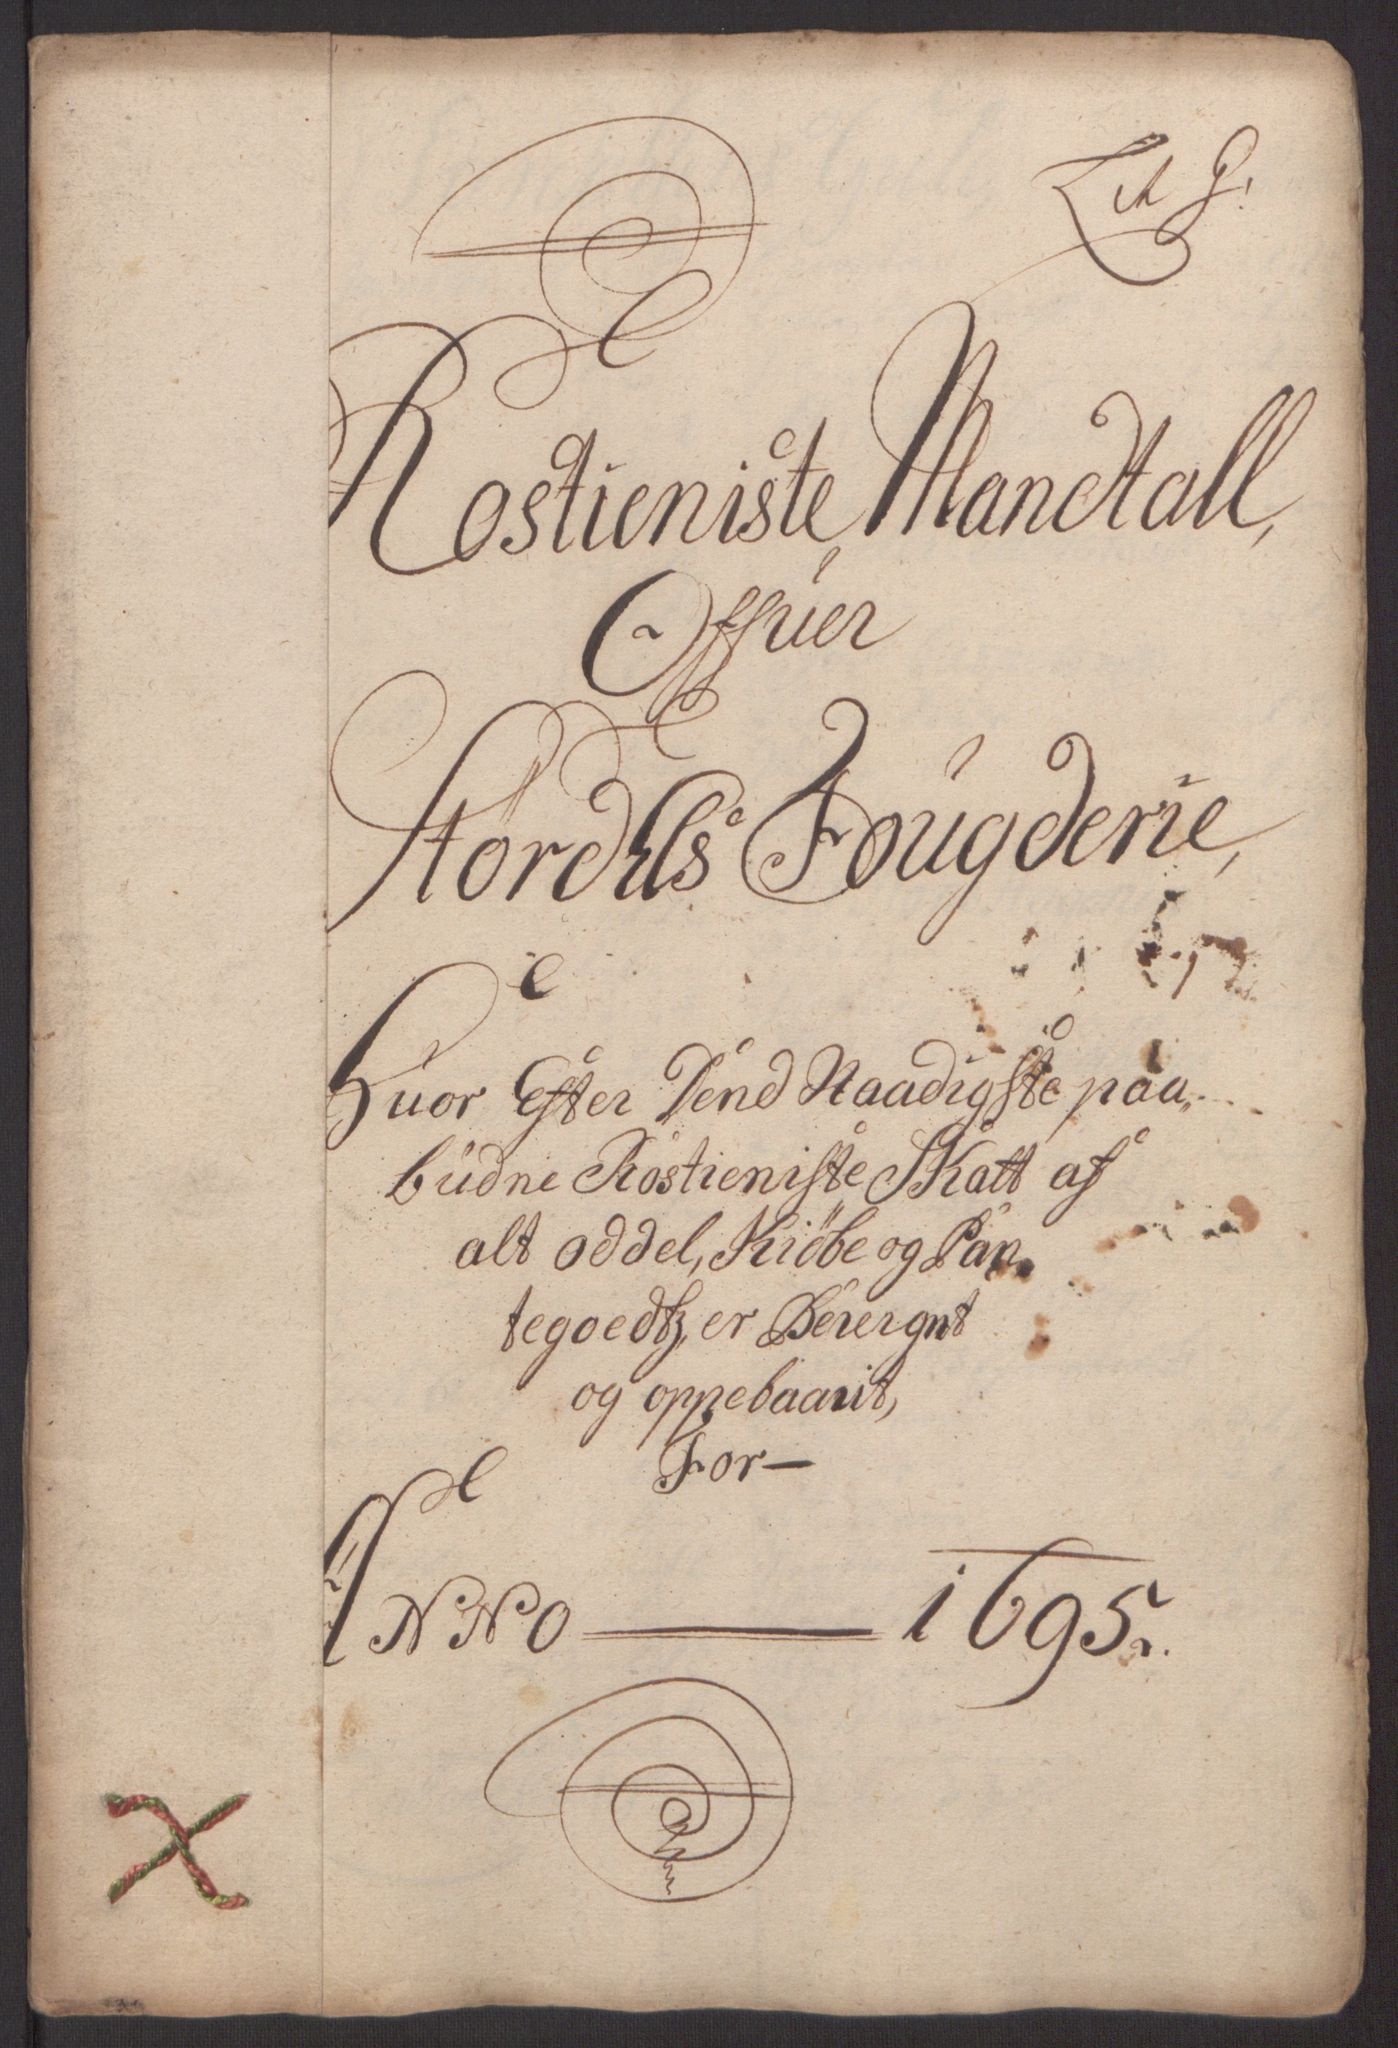 Lit G.
Rostieniste Mandtall,
Offuer
Stördels Fougderie,
Huor Efter Dend Naadigste paa,
budne Rostieniste Skatt af
alt oddel, Kiöbe og Pan,
tegoedtz, er Bereignt
og oppebaarit,
For—
ANNO — 1695.